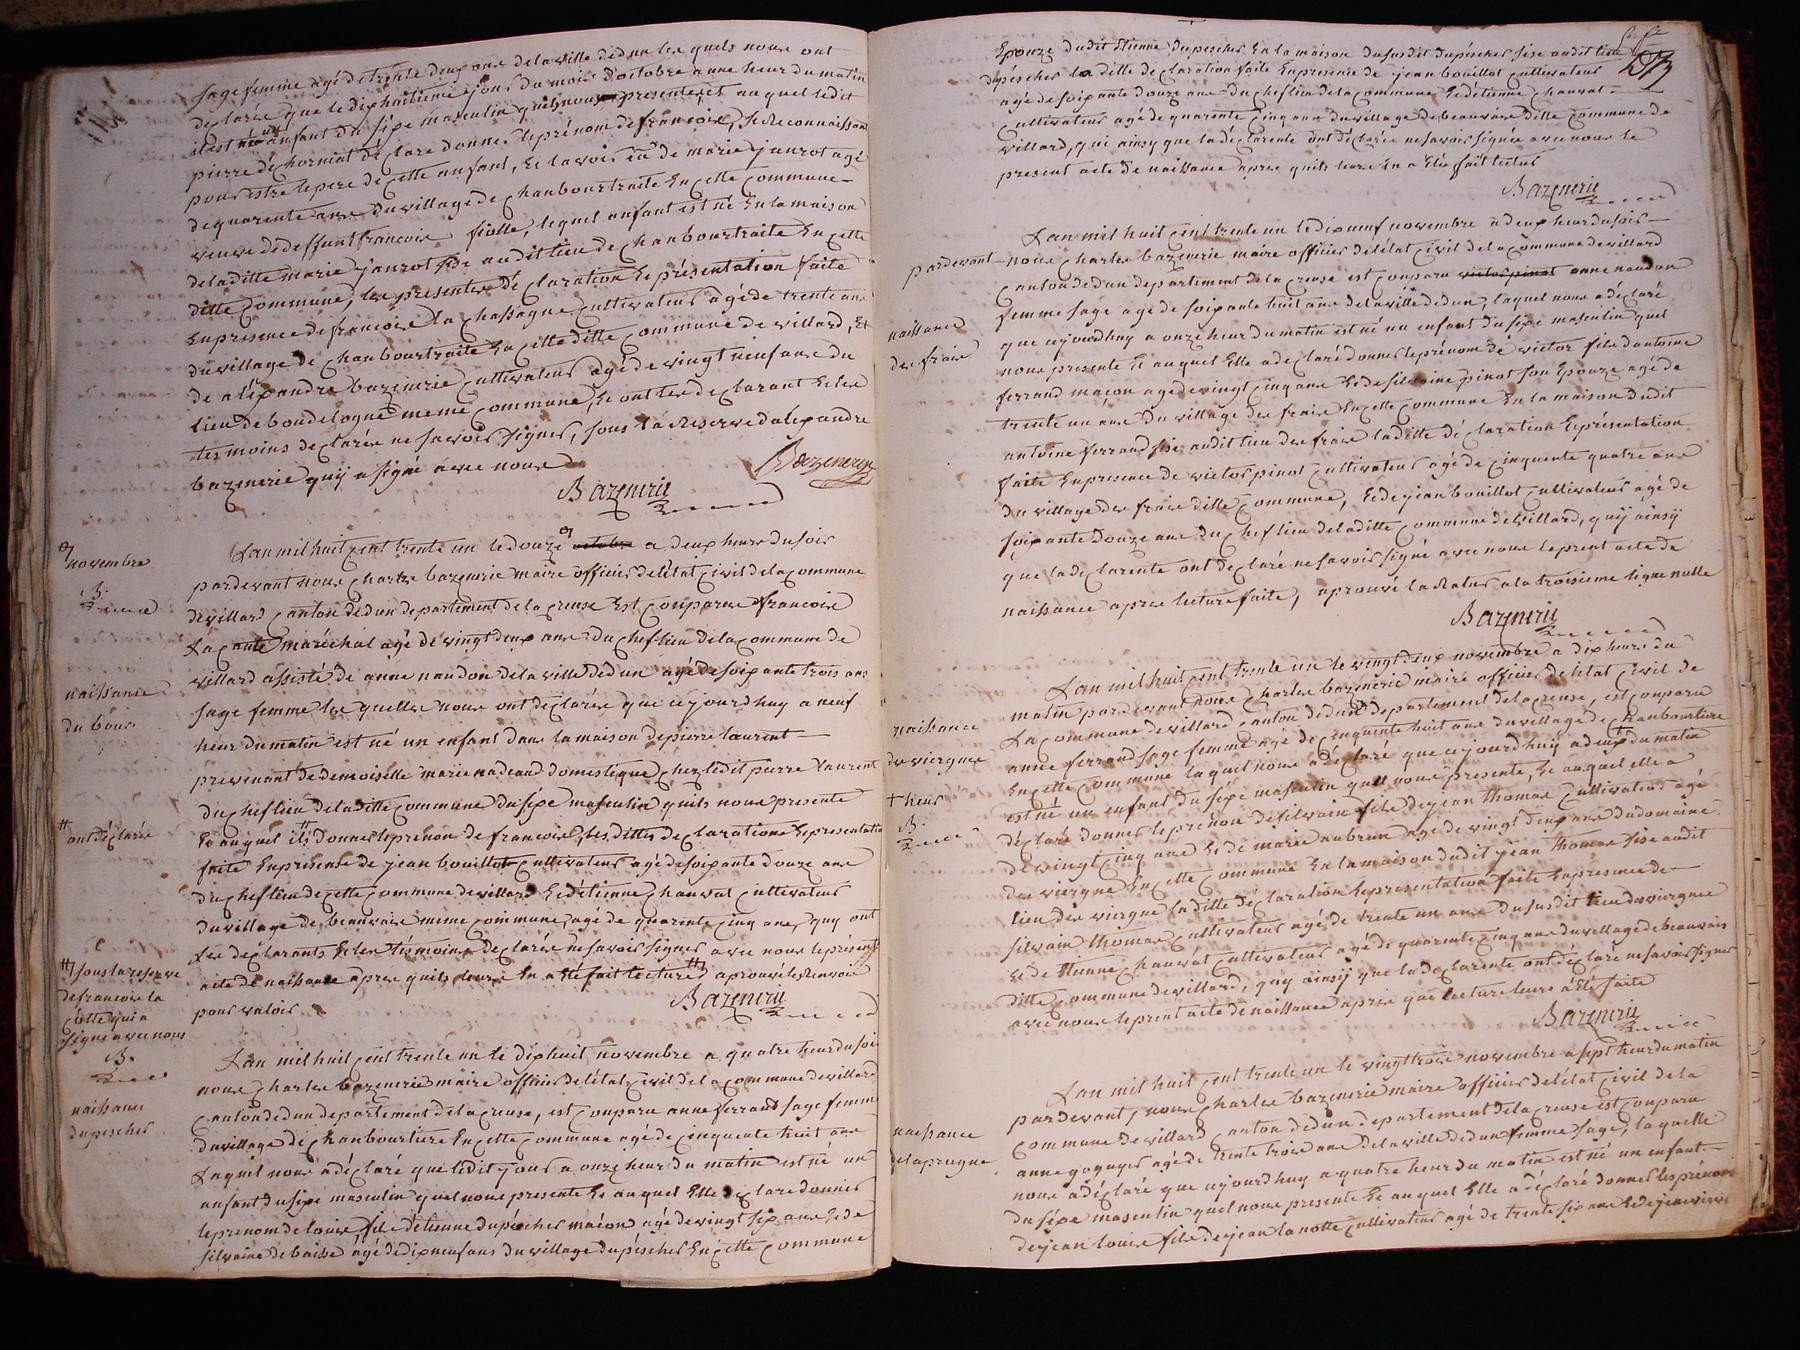 sage femme agé de trente deux ans de la ville dedun les quels nous ont
declarée que le dixhuitieme jour du mois d'octobre a une heur du matin
il est né un anfant du sixe masculin quel nous presente, et au quel ledit
pierre déchorniat déclare donner le prénom de francois, se Reconnaissant
pour estre le pere de cette anfant, Et lavoir Eu de marie janrot agé
de quarente ans du village de chanbourtraite En cette commune
veuve de deffunt francois fiolle, lequel anfant est né En la maison
de laditte marie janrot sise audit lieu de chanbourtraite En cette
ditte commune, les presentes déclaration Et présentation faite
En presence de francois la chassagne cultivateur agé de trente ans
du village de chanbourtraite En cette ditte commune de villard, Et
de aléxandre bazenerie cultivateur agé de vingt neuf ans du
lieu de boudelogne meme commune, Et ont les declarant Et les
tesmoins declarée ne savoir signer, sous la Reserve d'alexandre
bazenerie quy a signé avec nous
Bazenerye
Bazenerie
novembre
B.
Lan mil huit cent trente un le douze octobre a deux heures du soir
par devant nous charles bazenerie maire officier de létat civil de la commune
de villard canton dedun departement de la creuse Est comparue francois
Lacante maréchal agé de vingt deux ans du chef lieu de la commune de
villard assisté de anne naudon de la ville dedun agé de soixante trois ans
naissance
du bour
sage femme les quelles nous ont declarée que cejourdhuy a neuf
heur du matin est né un enfant dans la maison de pierre laurent
prevenant de demoiselle marie nadeaud domestique chez ledit pierre laurent
du chef lieu de laditte commune du sixe masculin quils nous presente
ont déclarée
Et au quel ils donner le prénon de francois, les dittes declarations Et presentation
faite En presense de jean bouillot cultivateur agé de soixante douze ans
du chef lieu de cette commune de villard Et détienne chauvat cultivateur
du village de beauvais meme commune, agé de quarente cinq ans, quy ont
Les declarants Et les témoins declarée ne savoir signer avec nous le présent
sous la reserve
de francois la
cotte qui a
signé avec nous
B.
acte de naissance apres quils leure En a été fait lecture aprouvé le Renvoie
pour valoir
Bazenerie
Lan mil huit cent trente un le dixhuit novembre a quatre heur du soir
nous charles bazenerie maire officier de létat civil de la commune de villard
naissance
du pescher
canton dedun departement de la creuse, est comparu anne ferrand sage femme
du village de chanbourtiere En cette commune agé de cinquente huit ans
Laquel nous a déclaré que ledit jour a onze heur du matin est né un
anfant du sixe masculin quel nous presente Et au quel Elle declare donner
le prenom de louis, fils détienne dupéscher macon agé de vingt six ans Et de
silvaine de baise agé de dixneuf ans du village dupéscher En cette commune
Epouze dudit Etienne dupescher En la maison dususdit dupéscher sise audit lieu
dupéscher la ditte déclaration faite En presence de jean bouillot cultivateur
agé de soixante douze ans du chef lieu de la commune Et détienne chauvat
cultivateur agé de quarente cinq ans du village de beauvais ditte commune de
villard, qui ainsy que la déclarente ont déclaré ne savoir signée avec nous le
present acte de naissance apres quils leure En a été fait lecture
Bazenerie
Lan mil huit cent trente un le dixneuf novembre a deux heur du soir
par devant nous charles bazenerie maire officier de létat civil de la commune de villard
canton dedun departement de la creuse est conparu victor pinot anne naudon
femme sage agé de soixante huit ans de la ville dedun, laquel nous a déclaré
naissance
des frais
que cejourdhuy a onze heur du matin est né un enfant du sixe masculin quel
nous presente Et au quel Elle a déclaré donner le prénom de victor fils d'antoine
ferrand macon agé de vingt cinq ans Et de silvaine pinot son Epouze agé de
trente un ans du village des frais En cette commune En la maison dudit
antoine ferrand sise audit lieu des frais laditte déclaration Et présentation
faite En presence de victor pinot cultivateur agé de cinquente quatre ans
du village des frais ditte commune, Et de jean bouillot cultivateur agé de
soixante douze ans du chef lieu de laditte commune de villard, quy ainsy
que la declarente ont déclaré ne savoir signé avec nous le prent acte de
naissance apres lecture faite, aprouvé la Ratur a la troisieme ligne nulle
Bazenerie
Lan mil huit cent trente un le vingt deux novembre a dix heures du
matin par devant nous charles bazenerie maire officier de létat civil de
naissance
des viergnes
La commune de villard canton dedun departement de la creuse, est conparu
anne ferrand sage femme agé de cinquente huit ans du village de chanbourtiere
En cette commune laquel nous a déclaré que cejourdhuy a deux du matin
heur
B.
est né un enfant du sixe masculin quel nous presente, Et au quel elle a
déclaré donner le prénon de silvain fils de jean thomas cultivateur agé
de vingt cinq ans Et de marie aubrun agé de vingt deux ans du domaine
des viergne En cette commune En la maison dudit jean thomas sise audit
lieu des viergne laditte déclaration Et presentation faite En presence de
silvain thomas cultivateur agé de trente un ans dususdit lieu des viergnes
Et de Etienne chauvat cultivateur agé de quarente cinq ans du village de beauvais
ditte commune de villard, quy ainsy que la declarente ont déclaré ne savoir signer
avec nous le prent acte de naissance apres que lecture leure a été faite
Bazenerie
Lan mil huit cent trente un le vingt trois novembre a sept heur du matin
par devant, nous charles bazenerie maire officier de létat civil de la
naissance
de la prugne
commune de villard canton dedun departement de la creuse est conparu
anne goguyer agé de trente trois ans de la ville dedun femme sage, laquelle
nous a déclaré que cejourdhuy a quatre heur du matin est né un enfant
du sixe masculin quel nous presente Et au quel Elle a déclaré donner les prénoms
de jean louis fils de jean la notte cultivateur agé de trente six ans Et de